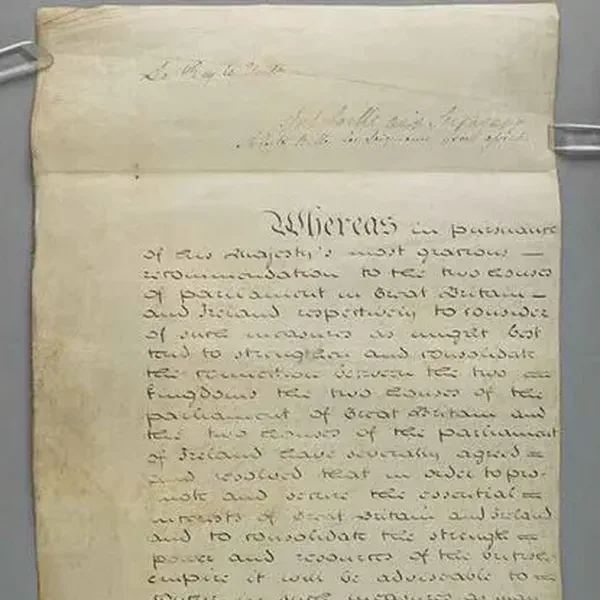 Le Roy le Veult
Soit baille aux Seigneurs
A cette Bille les Seigneurs sont assentus
Whereas in pursuance
of his Majesty's most gracious —
recommendation to the two houses
of parliament in Great Britain —
and Ireland respectively to consider
of such measures as might best
tend to strengthen and consolidate
the connection between the two =
kingdoms the two houses of the
parliament of Great Britain and
the two houses of the parliament
of Ireland have severally agreed =
and resolved that in order to pro-
mote and secure the essential =
interests of Great Britain and Ireland
and to consolidate the strength =
power and resources of the british
empire it will be adviseable to =
in such measures as may